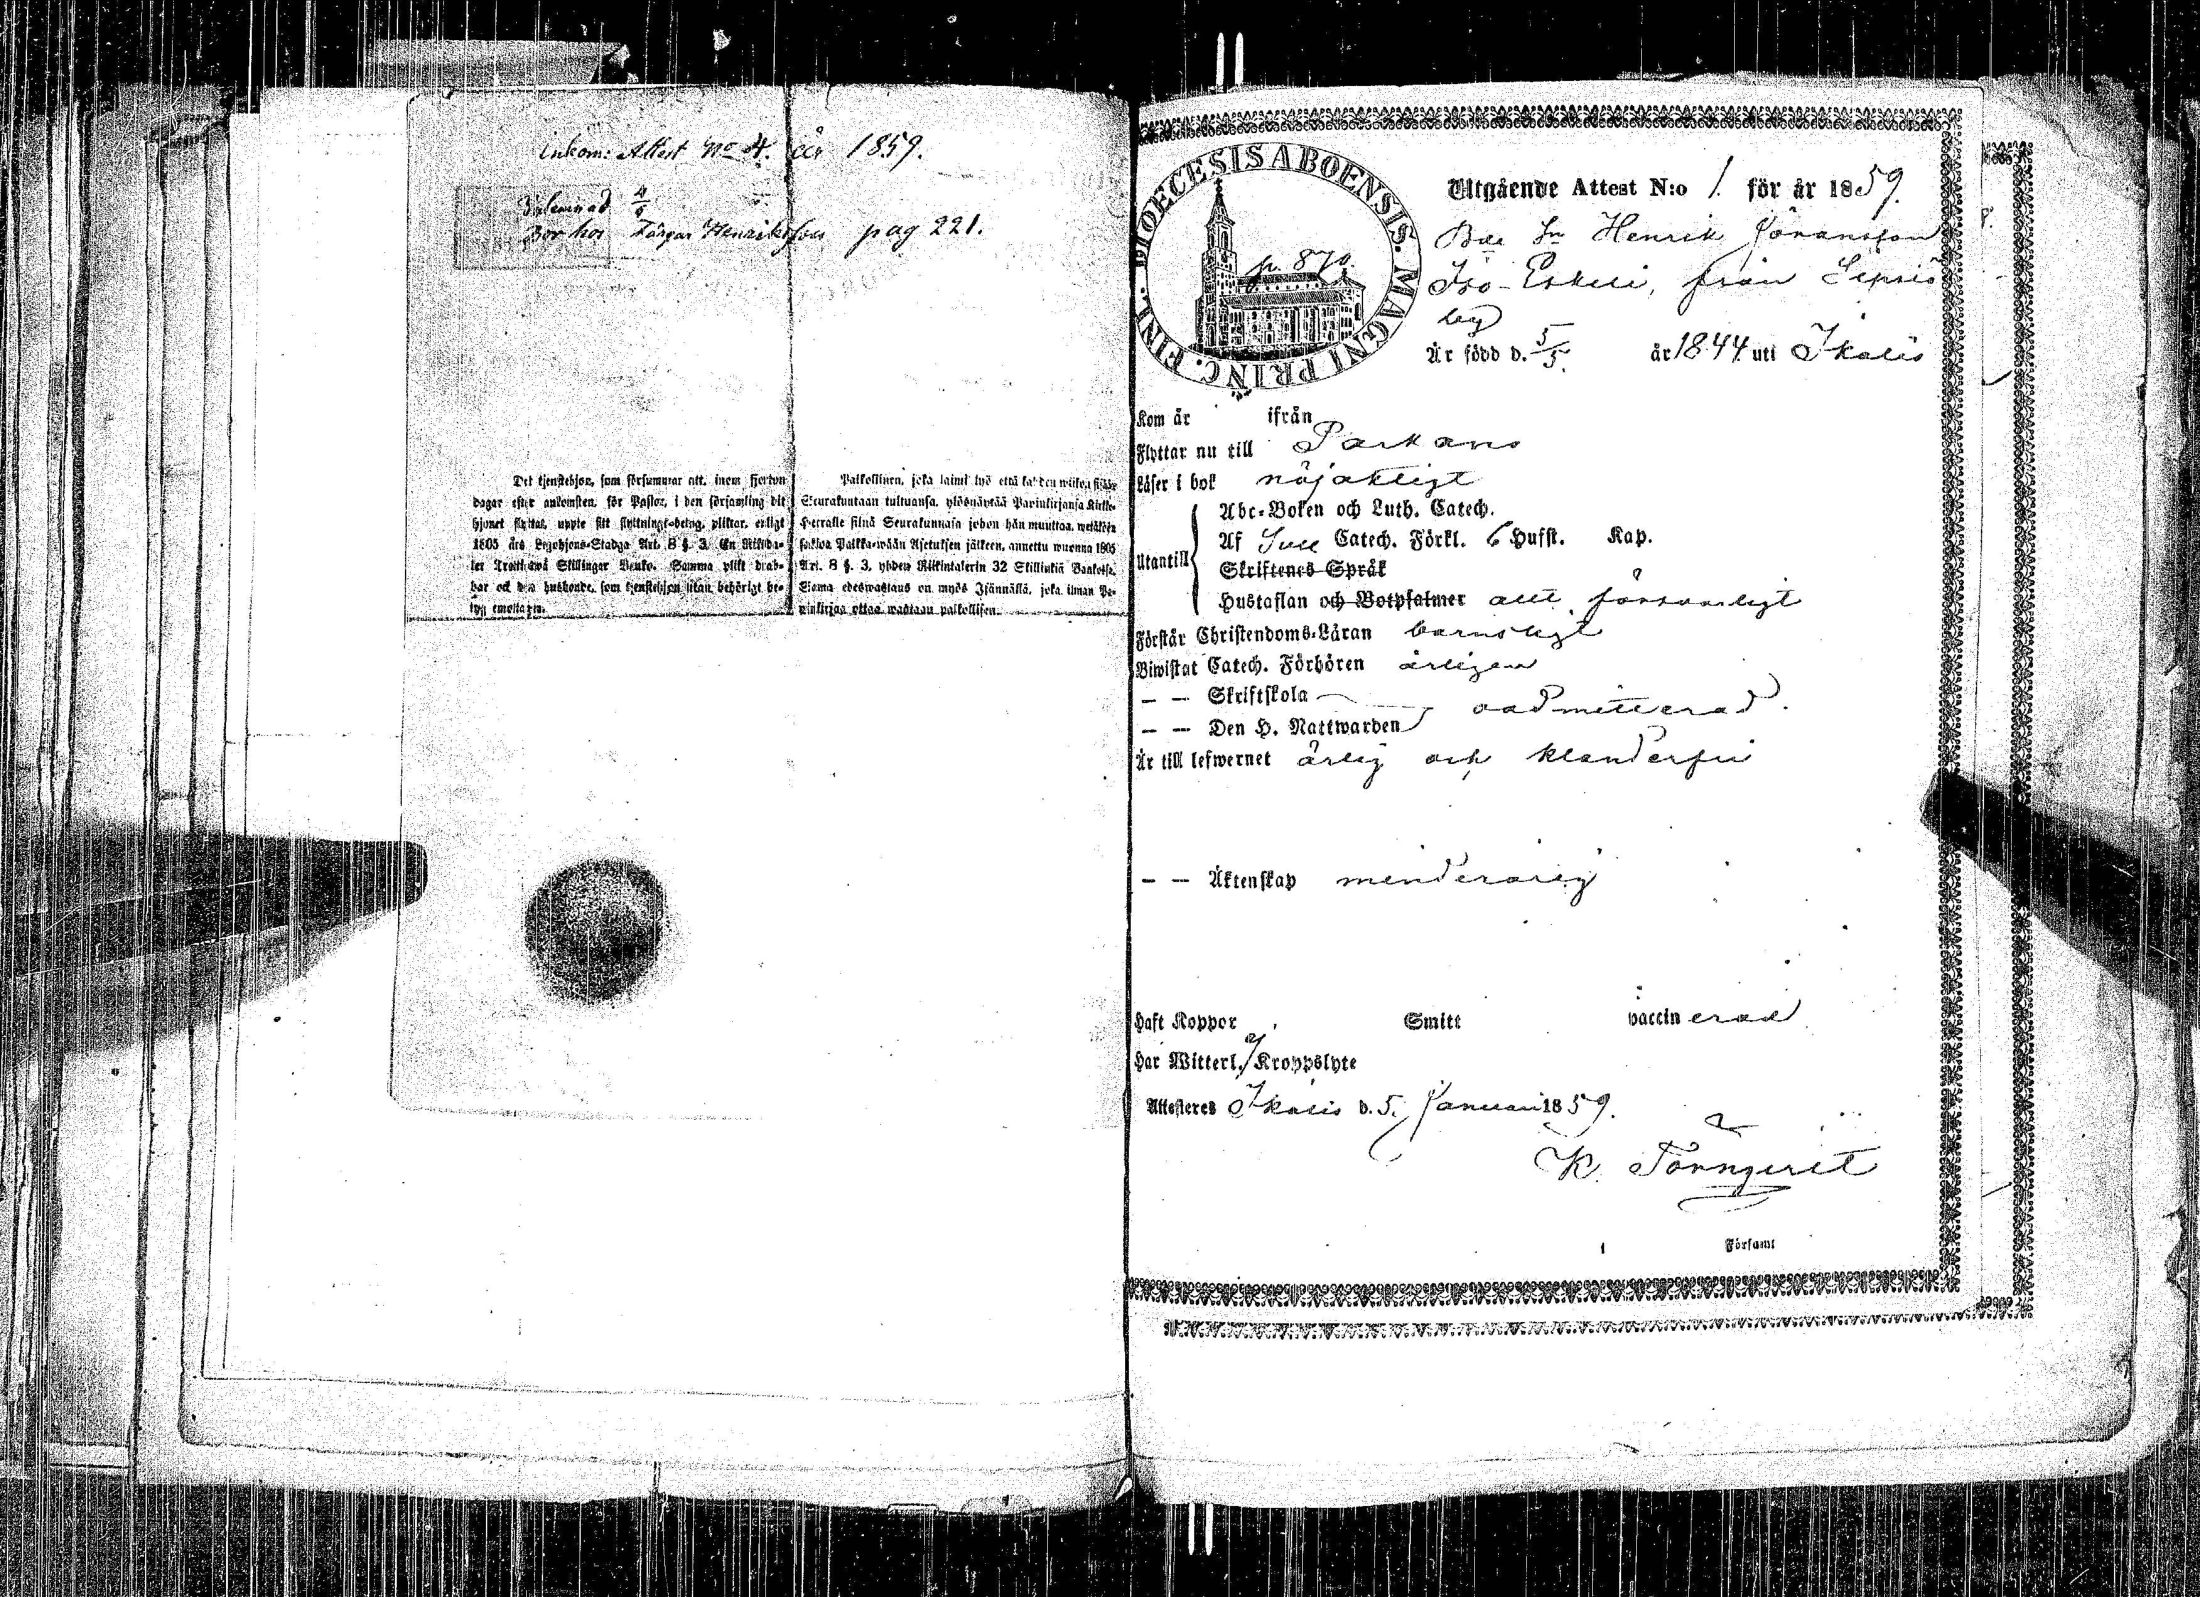 Inkom: Attest No 4. år 1859.
Inlemnad 4/5
Bor hos Färgar Henriksson pag 221.
Det tjenstehjon, som försummar att, inom fjorton
dagar efter ankomsten, för Pastor, i den församling dit
hjonet flyttat, uppte sitt flyttnings-betyg, pliktar, enligt
1805 års Legohjons-Stadga Art. 8 §. 3. En Riksda-
ler Trettiotwå Skillingar Banko. Samma plikt drab-
bar ock den husbonde, som tjenstehjon utan behörigt be-
tyg emottager.
Palkollinen, joka laimi lyö että kahden wiikon sisään
Seurakuntaan tultuansa, ylösnäyttää Papinkirjansa Kirkko-
herralle siinä Seurakunnasa johon hän muuttaa, wetäköön
sakkoa Palkka-wään Asetuksen jälkeen, annettu wuonna 1805
Art. 8 §. 3, yhden Riikintalerin 32 Skillinkiä Bankosa.
Sama edeswastaus on myös Isännällä, joka ilman Pa-
pinkirjaa ottaa wastaan palkollisen.
DIOECESIS ABOENSIS. MAGNI PRINC. FINL.
p. 870.
Utgående Attest N:o 1 för år 1859.
Bde Sn Henrik Jöransson
Iso-Eskeli, från Sipsiö
by
Är född d. 5/5. år 1844 uti Ikalis
Kom år ifrån
Flyttar nu till Parkano
Läser i bok nöjaktigt
Utantill
Abc-Boken och Luth. Catech.
Af Sveb Catech. Förkl. 6 Hufst. Kap.
Skriftenes Språk
Hustaflan och Botpsalmer allt försvarligt
Förstår Christendoms-Läran barnsligt
Biwistat Catech. Förhören årligen
— — Skriftskola
oadmitterad.
— — Den H. Nattwarden
Är till lefwernet ärlig och klanderfri
— — Äktenskap minderårig
Haft Koppor Smitt vaccinerad
Har Witterl. ej Kroppslyte
Attesteres Ikalis d. 5. Januari 1859.
K. Törnqvist
i Församl